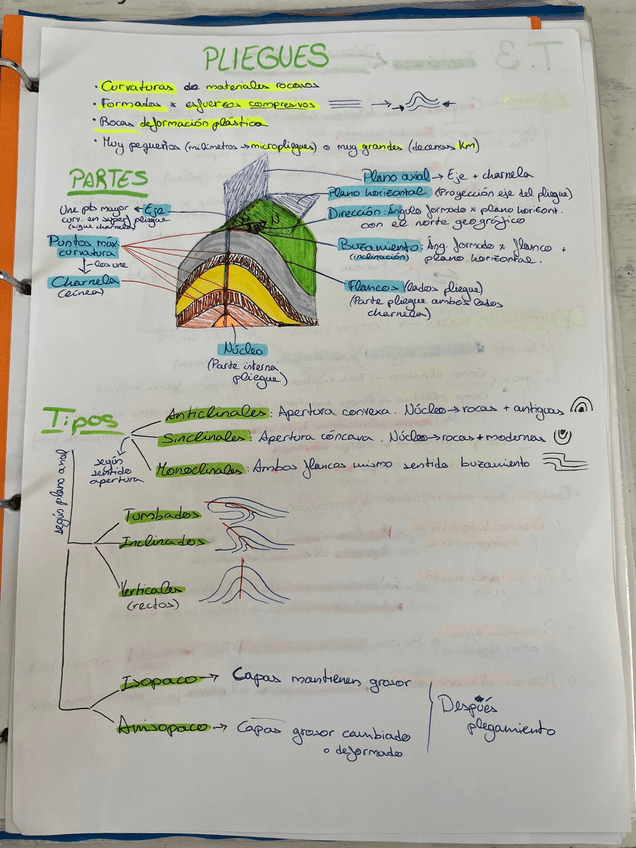 PLIEGUES
· Curvaturas de materiales rocosos
· Formados x esfuerzos compresivos
· Rocas deformación plástica
· Muy pequeños (milímetros → micropliegues) o muy grandes (decenas km)
PARTES
Plano axial → Eje + charnela
Plano horizontal (Proyección eje del pliegue)
Dirección: Ángulo formado x plano horizont.
con el norte geográfico
Une pto mayor ← Eje
curv. en superf pliegue
(sigue charnela)
Puntos máx.
curvatura
↓ los une
Charnela
(Línea)
Buzamiento: Áng. formado x flanco +
(inclinación) plano horizontal.
Flancos (lados pliegue)
(Parte pliegue ambos lados
charnela)
N
Núcleo
(Parte interna
pliegue)
Tipos
según sentido apertura
Anticlinales: Apertura convexa. Núcleo → rocas + antiguas
Sinclinales: Apertura cóncava. Núcleo → rocas + modernas
Monoclinales: Ambos flancos mismo sentido buzamiento
según plano axial
Tumbados
Inclinados
Verticales
(rectos)
Isopaco → Capas mantienen grosor
Anisopaco → Capas grosor cambiado
o deformado
Después
plegamiento